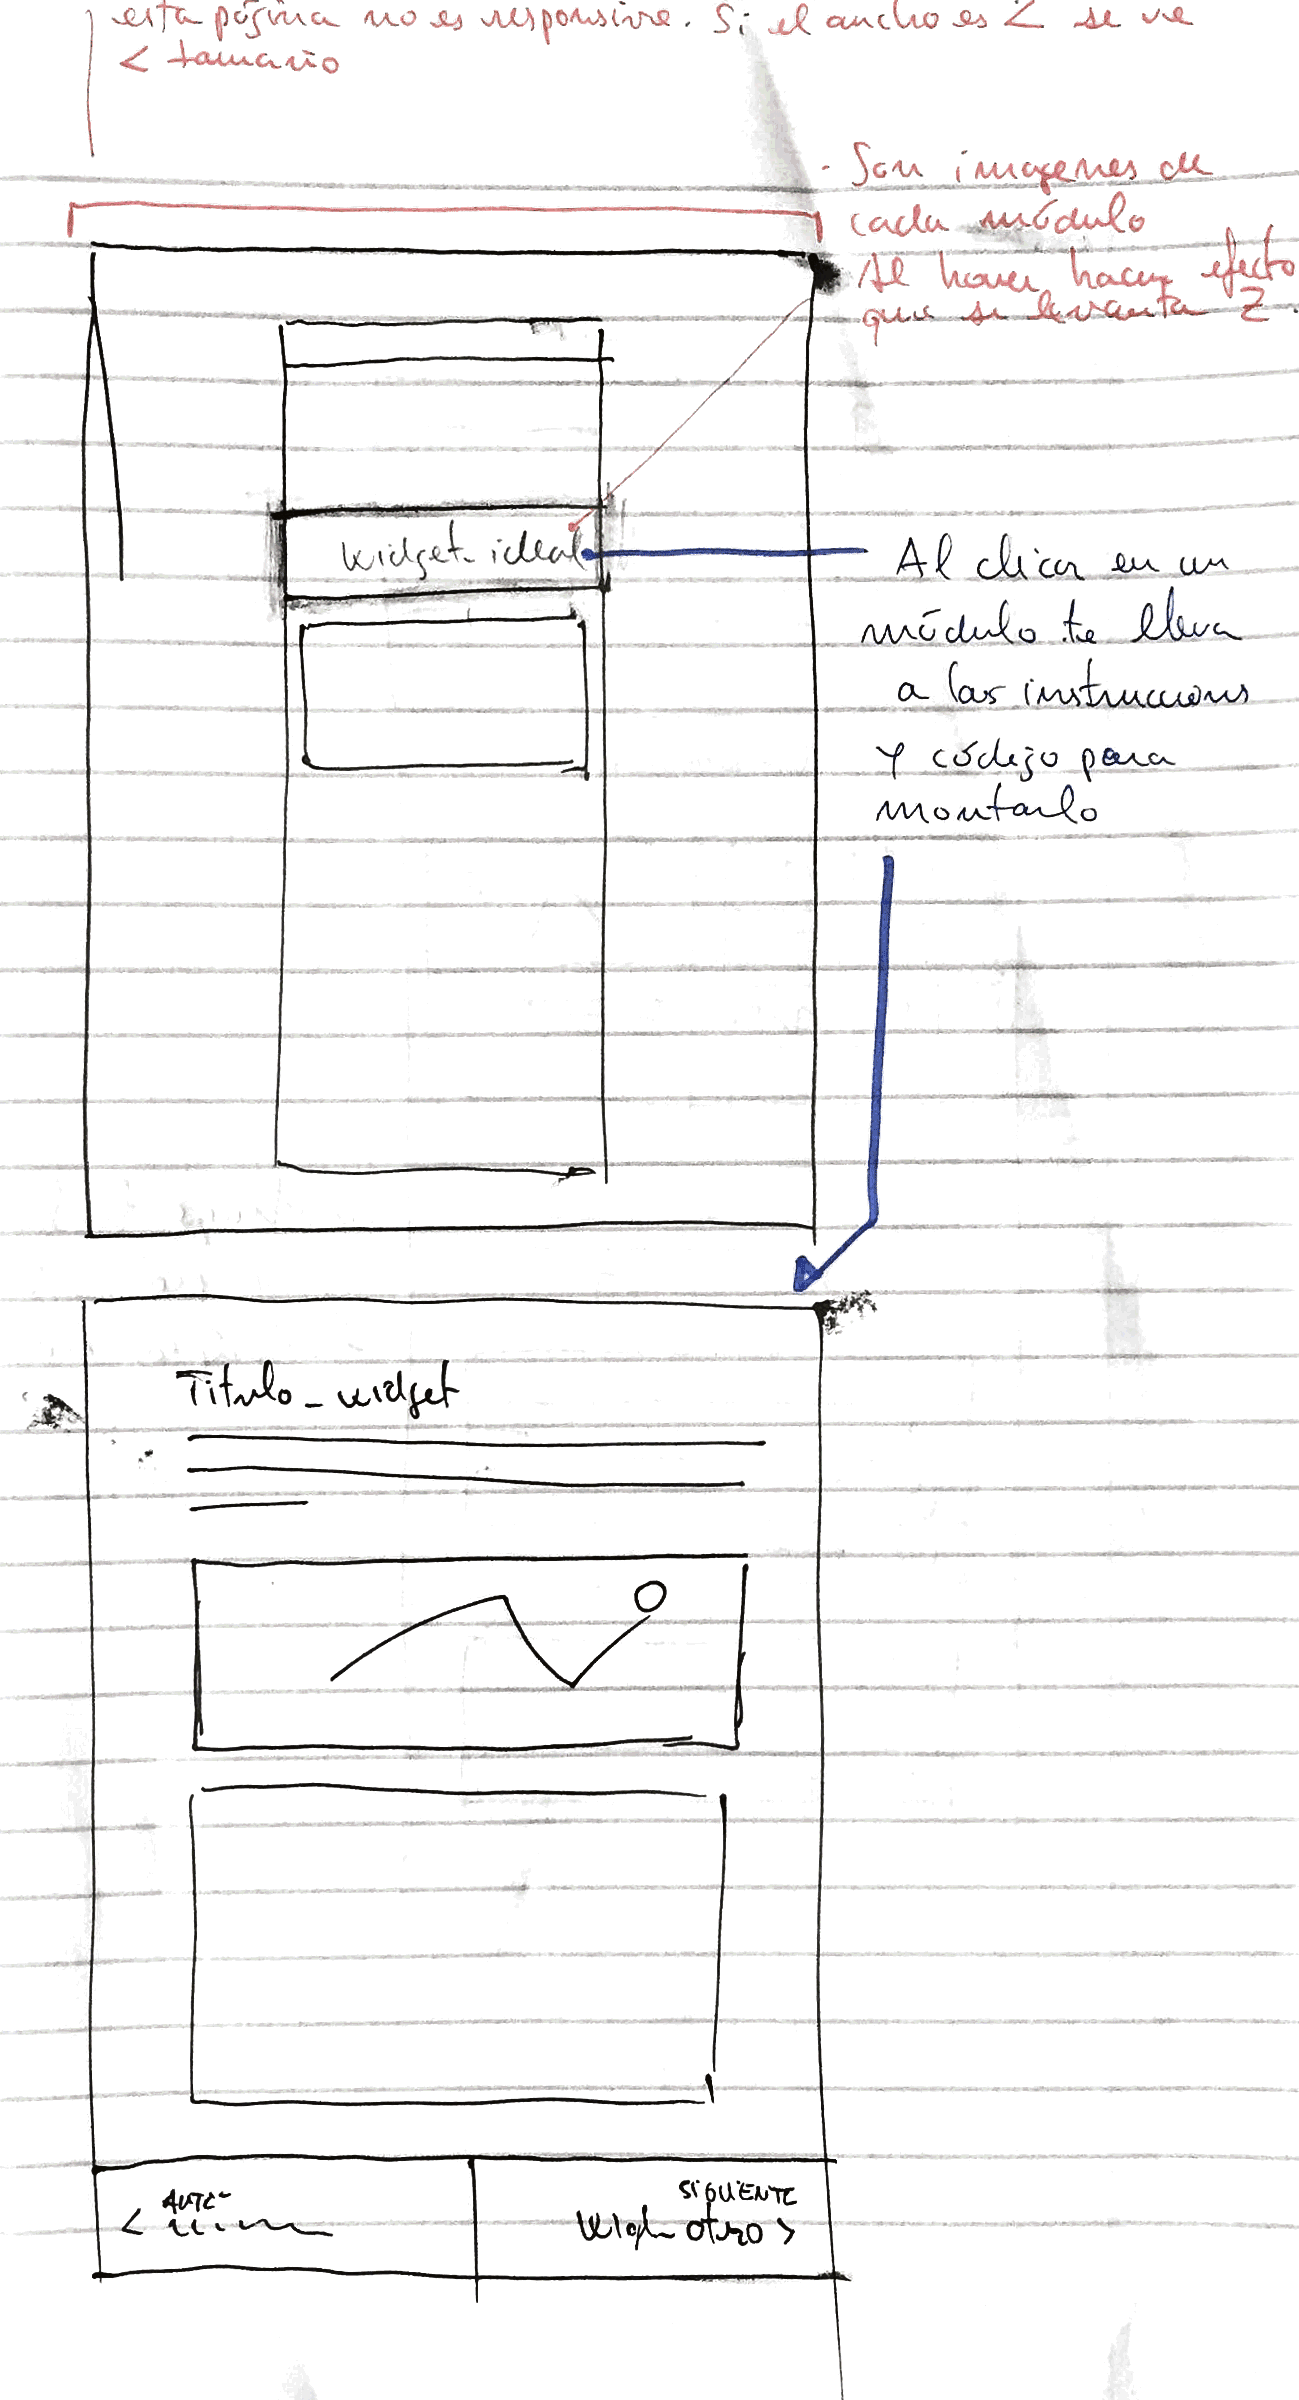 esta página no es responsive. Si el ancho es < se ve
< tamaño
- Son imagenes de
cada módulo
Al hover hacer efecto
que se levanta Z.
widget-ideal
Al clicar en un
módulo te lleva
a las instruccions
y código para
montarlo
Titulo_widget
< ANTE-
SIGUIENTE
otro >